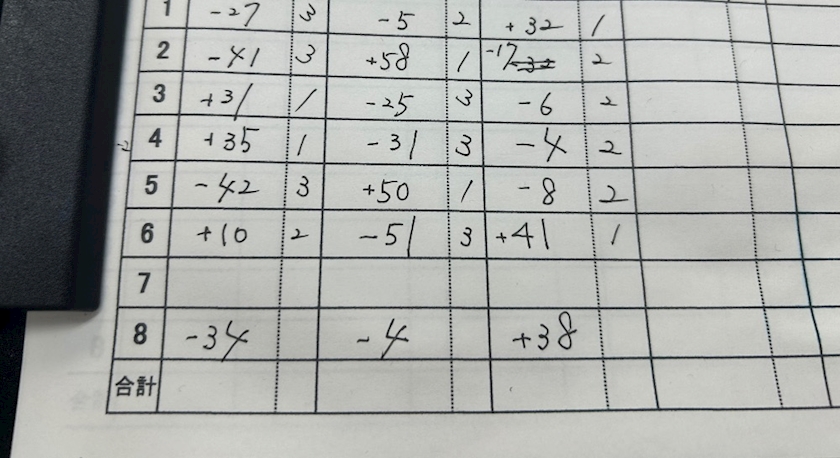 1 -27 3 -5 2 +32 1
2 -41 3 +58 1 -17 2
3 +31 1 -25 3 -6 2
4 +35 1 -31 3 -4 2
5 -42 3 +50 1 -8 2
6 +10 2 -51 3 +41 1
7
8 -34 -4 +38
合計